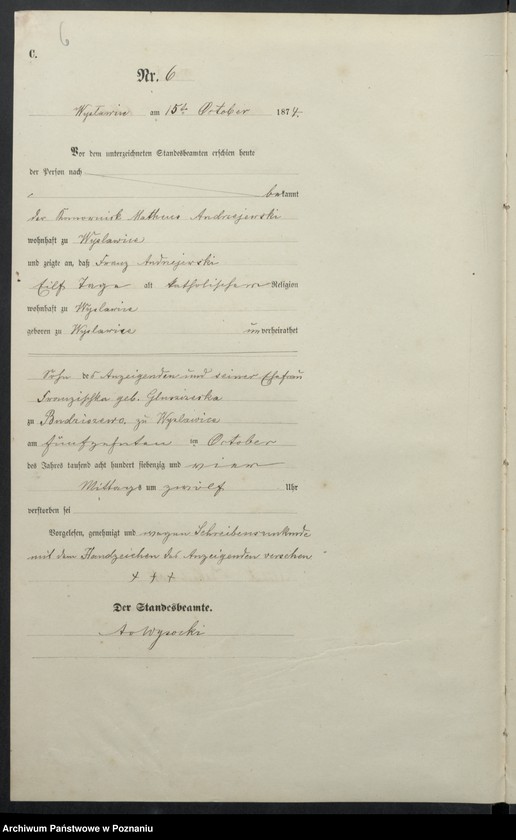 6
C.
Nr. 6
Wyslawice am 15ten October 1874.
Vor dem unterzeichneten Standesbeamten erschien heute
der Person nach
bekannt
der Komornick Matheus Andrzejewski
wohnhaft zu Wyslawice
und zeigte an, daß Franz Andrzejewski
Eilf Tage alt katholischer Religion
wohnhaft zu Wyslawice
geboren zu Wyslawice unverheirathet
Sohn des Anzeigenden und seiner Ehefrau
Franzischka geb.
zu zu Wyslawice
am fünfzehnten ten October
des Jahres tausend acht hundert siebenzig und vier
Mittags um zwölf Uhr
verstorben sei
Vorgelesen, genehmigt und wegen Schreibensunkunde
mit dem Handzeichen des Anzeigenden versehen
+ + +
Der Standesbeamte.
Wysocki
Archiwum Państwowe w Poznaniu